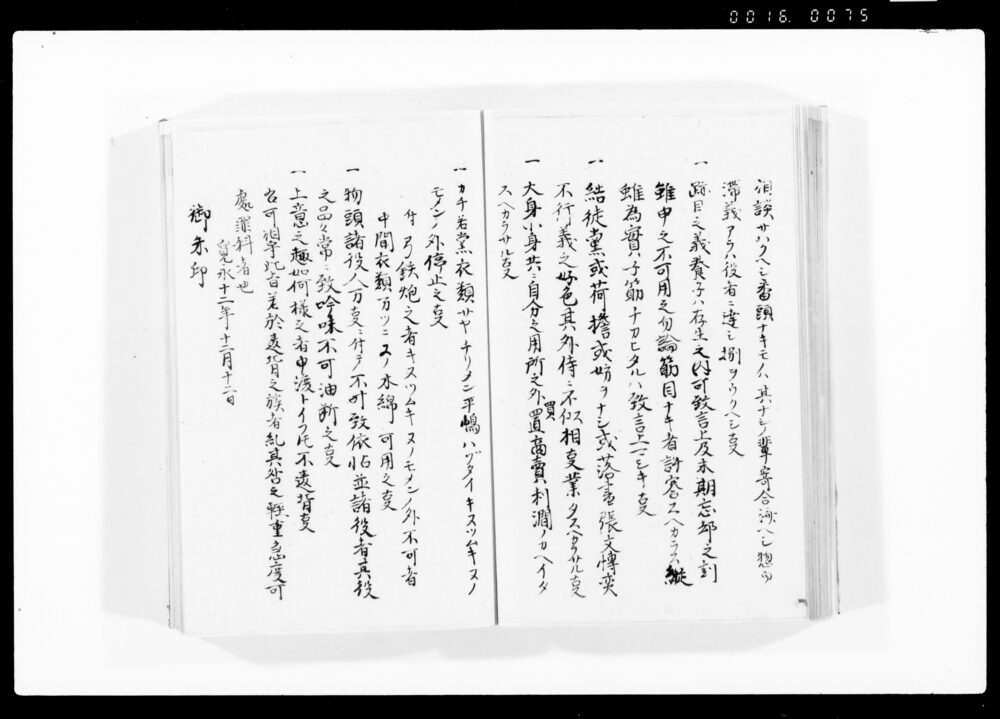 0016. 0075
相談サハクヘシ番頭ナキモノハ其ナミノ輩寄合沙ヘシ惣而
滞義アラハ役者ニ達シ捌ヲウクヘシ叓
一 跡目之義養子ハ存生之内可致言上及末期忘却之刻
雖申之不可用之勿論筋目ナキ者許容スヘカラス縦
雖為實子筋チカヒタルハ致言上マシキ叓
一 結徒黨或荷擔或妨ヲナシ或落書張文博奕
不行義之好色其外侍ニ不似相叓業タスヘカラサル叓
一 大身小身共ニ自分之用所之外買置商賣利潤ノカヘイタ
スヘカラサル叓
一 カチ若黨衣類サヤチリメン平嶋ハブタイキヌツムキヌノ
モメンノ外停止之叓
付弓鉄炮之者キヌツムキヌノモメンノ外不可着
中間衣類万ツニヌノ木綿可用之叓
一 物頭諸役人万叓ニ付テ不叶致依怙並諸役者其役
之品々常ニ致吟味不可油断之叓
一 上意之趣如何様之者申渡トイフ𪜈不違背叓
右可相守此旨若於違背之族者糺其咎之軽重急度可
處罪科者也
寛永十二年十二月十二日
御朱印